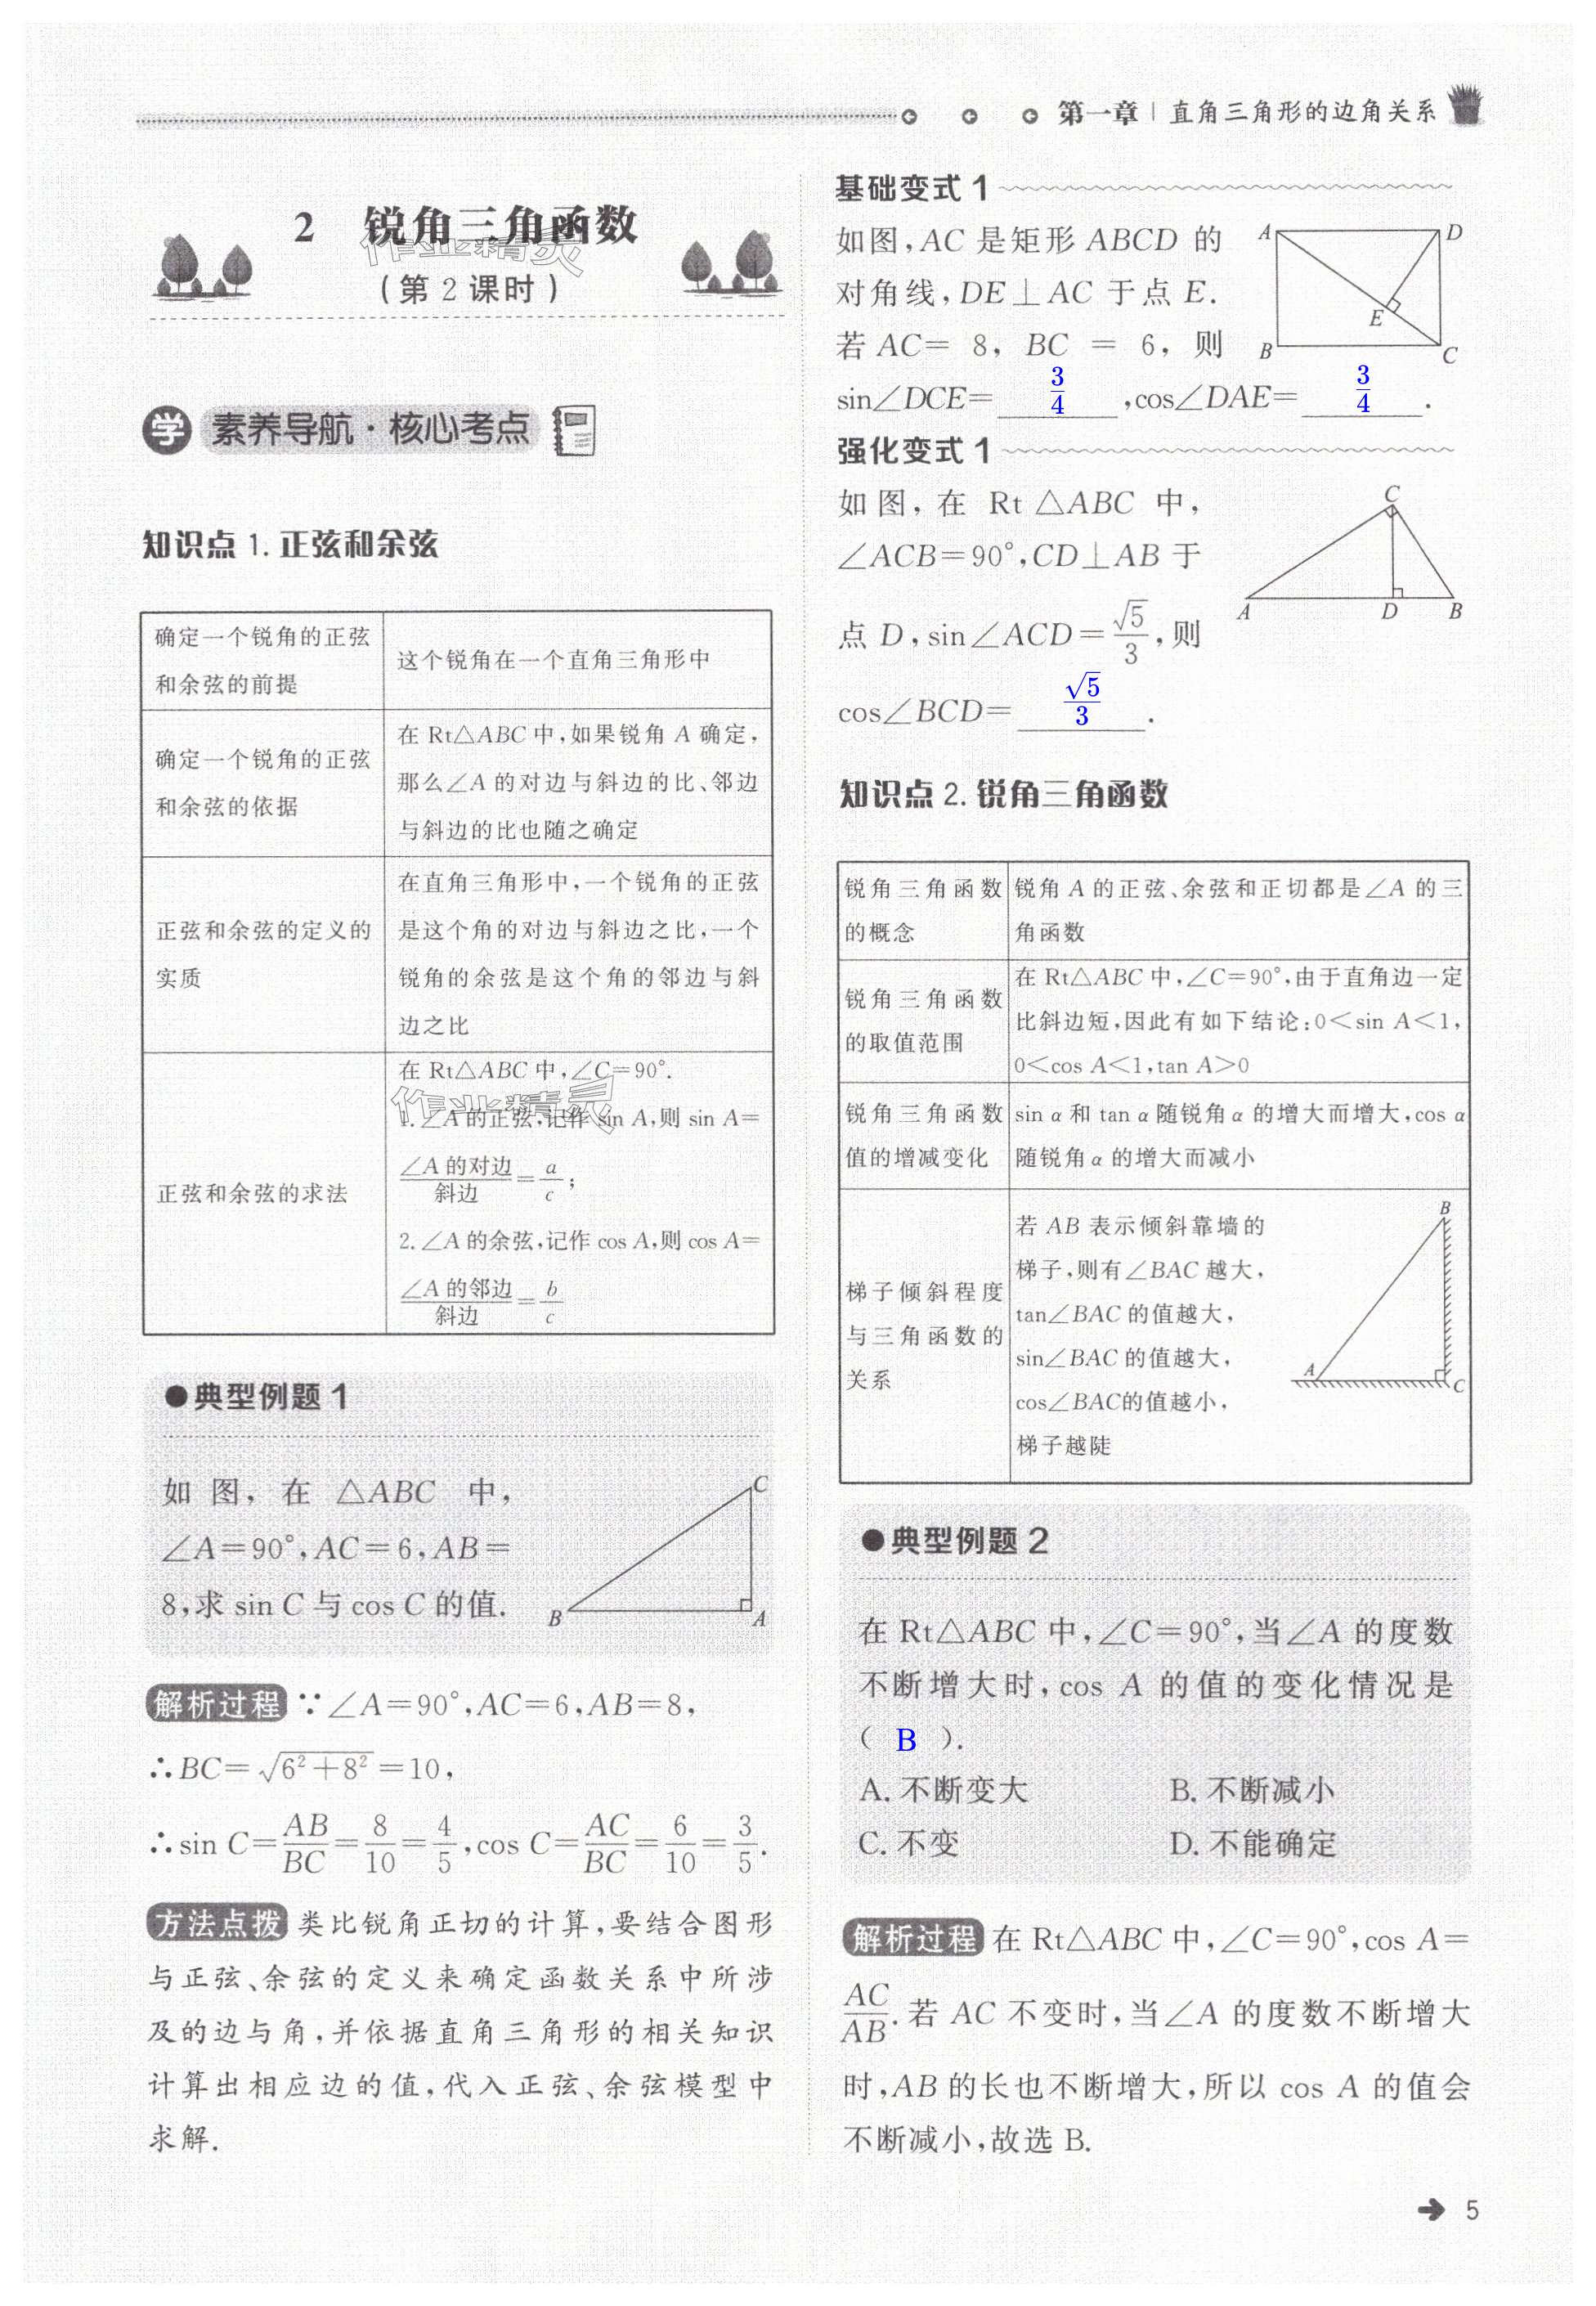 第一章 | 直角三角形的边角关系
2 锐角三角函数
(第2课时)
学 素养导航·核心考点
知识点 1. 正弦和余弦
确定一个锐角的正弦
和余弦的前提
这个锐角在一个直角三角形中
确定一个锐角的正弦
和余弦的依据
在 Rt△ABC 中,如果锐角 A 确定,
那么∠A 的对边与斜边的比、邻边
与斜边的比也随之确定
正弦和余弦的定义的
实质
在直角三角形中,一个锐角的正弦
是这个角的对边与斜边之比,一个
锐角的余弦是这个角的邻边与斜
边之比
正弦和余弦的求法
在 Rt△ABC 中,∠C=90°.
1. ∠A 的正弦,记作 sin A,则 sin A=
∠A 的对边/斜边=a/c;
2. ∠A 的余弦,记作 cos A,则 cos A=
∠A 的邻边/斜边=b/c
作业精灵
作业精灵
●典型例题 1
如图,在 △ABC 中,
∠A=90°,AC=6,AB=
8,求 sin C 与 cos C 的值.
C
B
A
解析过程 ∵∠A=90°,AC=6,AB=8,
∴BC=√(6²+8²)=10,
∴sin C=AB/BC=8/10=4/5,cos C=AC/BC=6/10=3/5.
方法点拨 类比锐角正切的计算,要结合图形
与正弦、余弦的定义来确定函数关系中所涉
及的边与角,并依据直角三角形的相关知识
计算出相应边的值,代入正弦、余弦模型中
求解.
基础变式 1
如图,AC 是矩形 ABCD 的
对角线,DE⊥AC 于点 E.
若 AC= 8, BC = 6, 则
sin∠DCE= 3/4 ,cos∠DAE= 3/4 .
A
D
E
B
C
强化变式 1
如图,在 Rt △ABC 中,
∠ACB=90°,CD⊥AB 于
点 D,sin∠ACD=√5/3,则
cos∠BCD= √5/3 .
C
A
D
B
知识点 2. 锐角三角函数
锐角三角函数
的概念
锐角 A 的正弦、余弦和正切都是∠A 的三
角函数
锐角三角函数
的取值范围
在 Rt△ABC 中,∠C=90°,由于直角边一定
比斜边短,因此有如下结论:0<sin A<1,
0<cos A<1,tan A>0
锐角三角函数
值的增减变化
sin α 和 tan α 随锐角 α 的增大而增大,cos α
随锐角 α 的增大而减小
梯子倾斜程度
与三角函数的
关系
若 AB 表示倾斜靠墙的
梯子,则有∠BAC 越大,
tan∠BAC 的值越大,
sin∠BAC 的值越大,
cos∠BAC的值越小,
梯子越陡
B
A
C
●典型例题 2
在 Rt△ABC 中,∠C=90°,当∠A 的度数
不断增大时,cos A 的值的变化情况是
( B ).
A. 不断变大 B. 不断减小
C. 不变 D. 不能确定
解析过程 在 Rt△ABC 中,∠C=90°,cos A=
AC/AB.若 AC 不变时,当∠A 的度数不断增大
时,AB 的长也不断增大,所以 cos A 的值会
不断减小,故选 B.
5